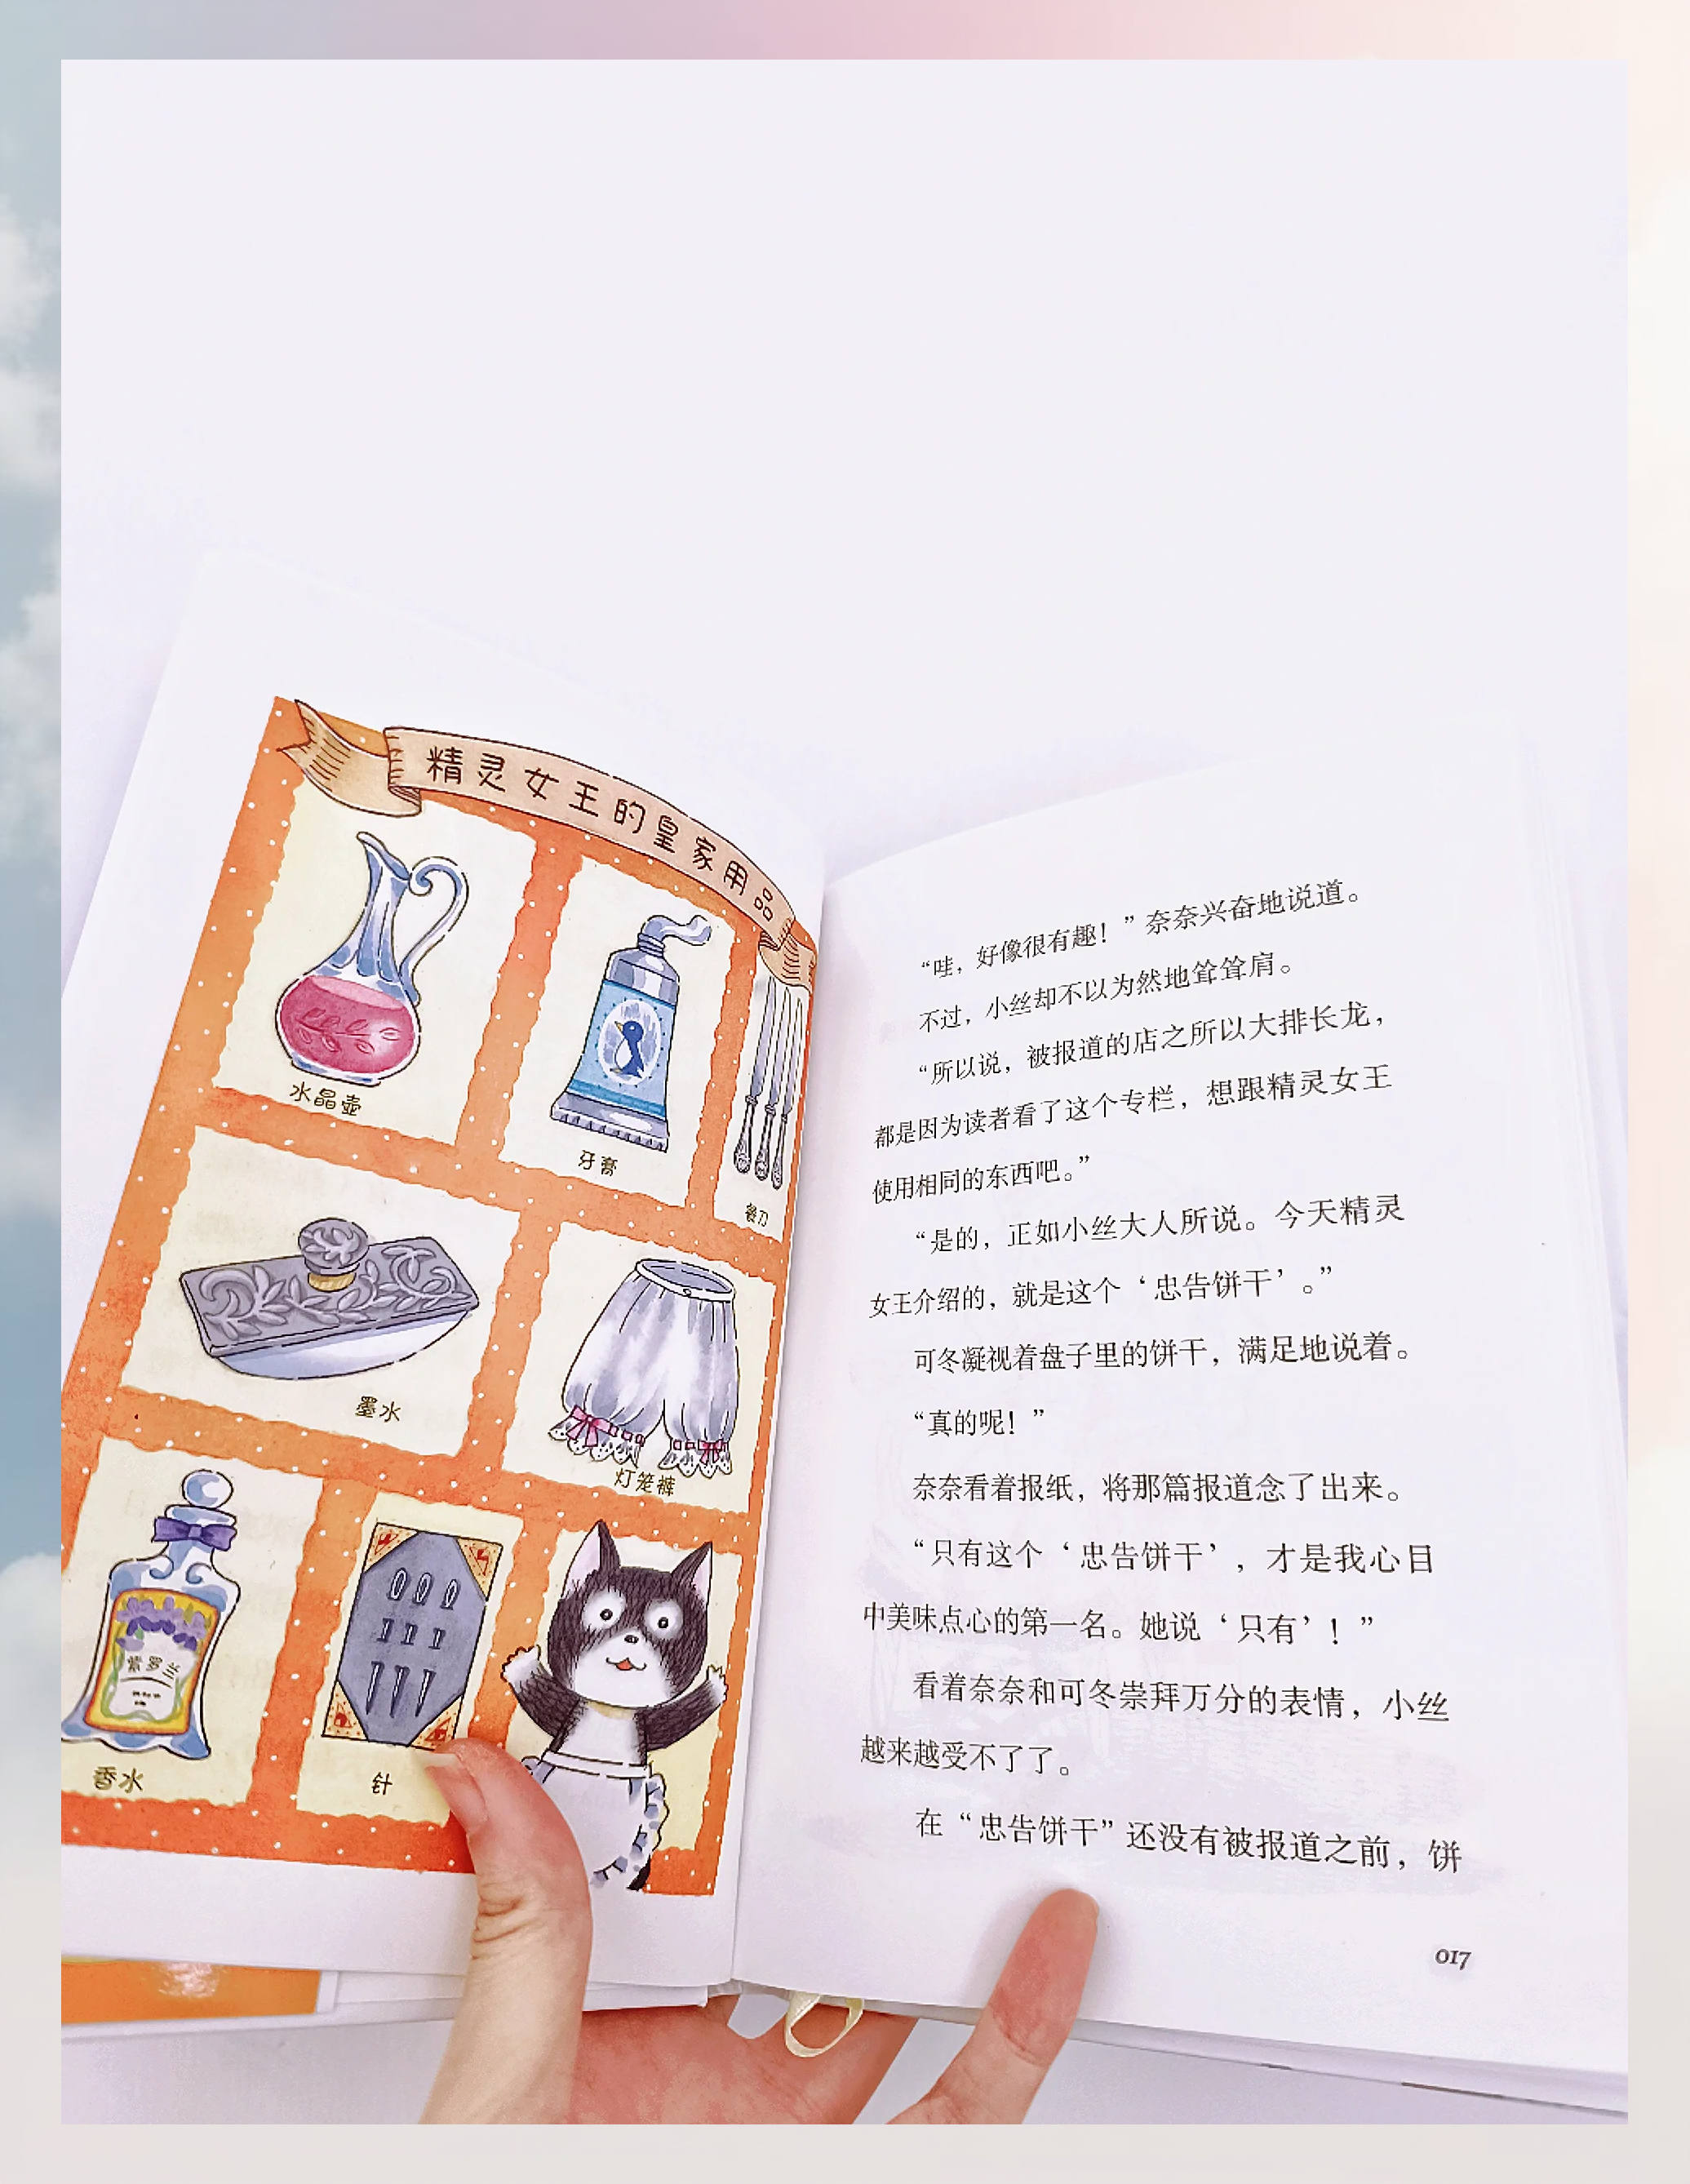 精灵女王的皇家用品
水晶壶
牙膏
餐刀
墨水
灯笼裤
紫罗兰
香水
针
“哇，好像很有趣！”奈奈兴奋地说道。
不过，小丝却不以为然地耸耸肩。
“所以说，被报道的店之所以大排长龙，
都是因为读者看了这个专栏，想跟精灵女王
使用相同的东西吧。”
“是的，正如小丝大人所说。今天精灵
女王介绍的，就是这个‘忠告饼干’。”
可冬凝视着盘子里的饼干，满足地说着。
“真的呢！”
奈奈看着报纸，将那篇报道念了出来。
“只有这个‘忠告饼干’，才是我心目
中美味点心的第一名。她说‘只有’！”
看着奈奈和可冬崇拜万分的表情，小丝
越来越受不了了。
在“忠告饼干”还没有被报道之前，饼
017